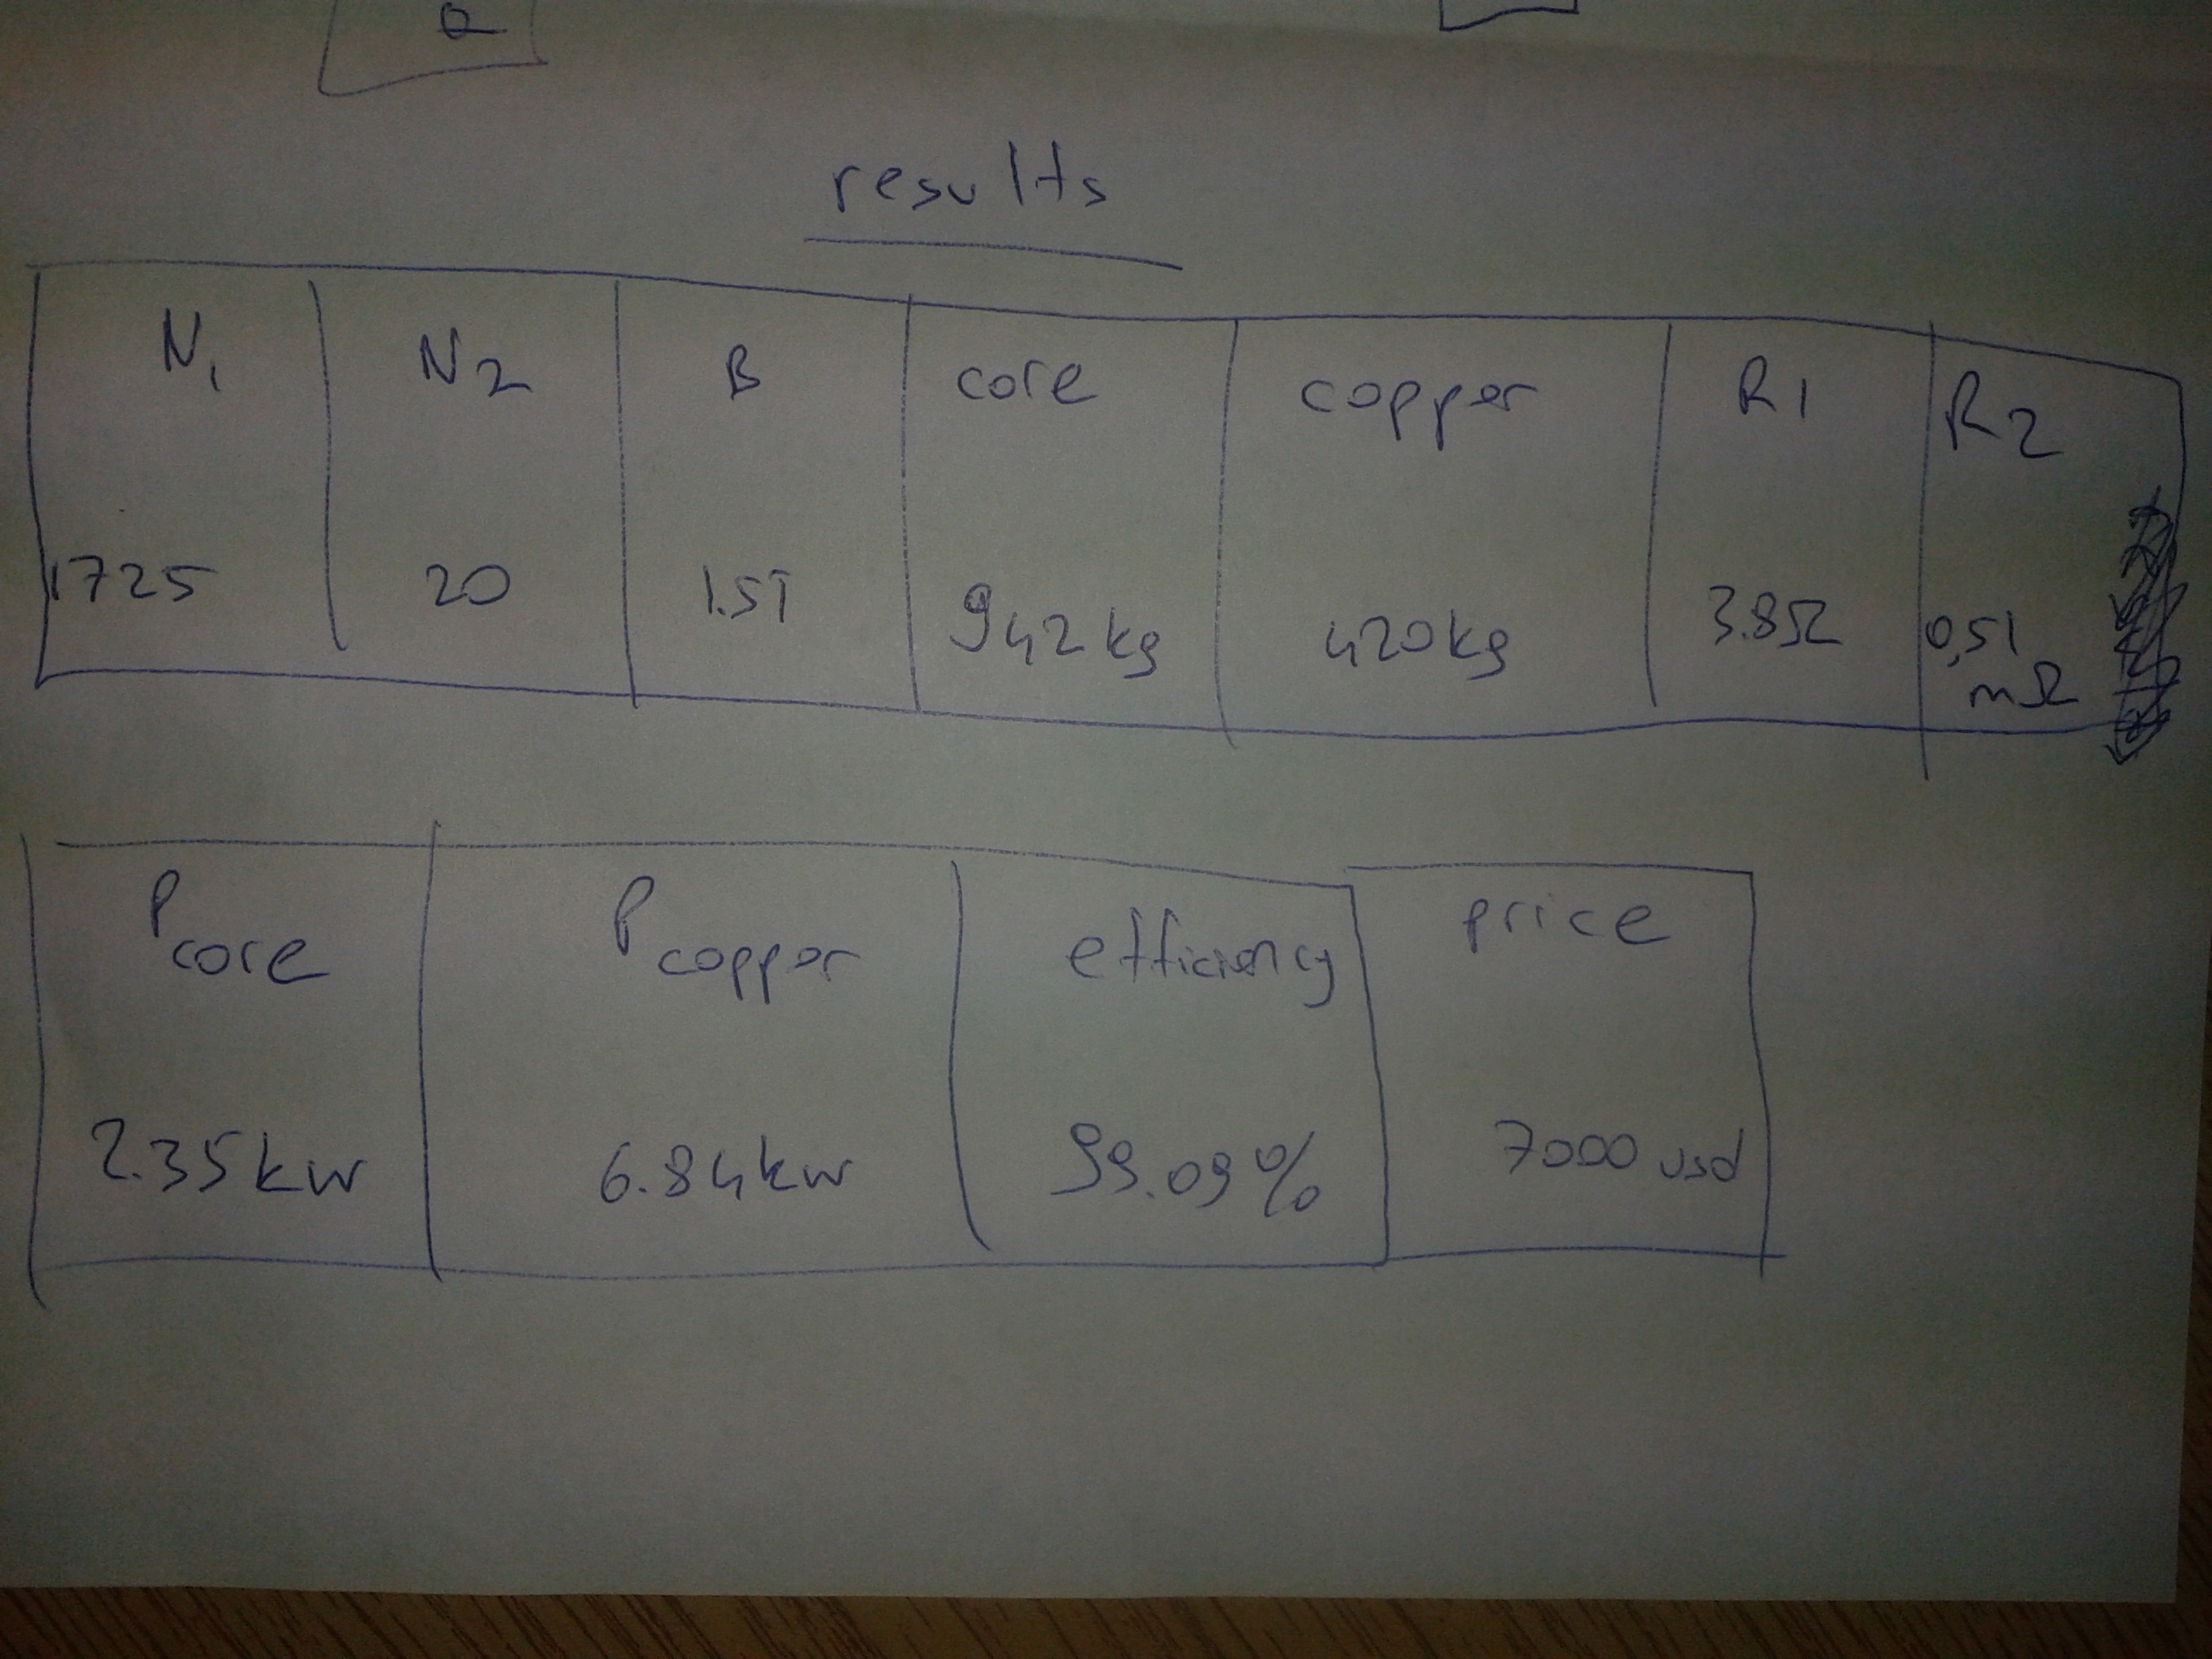 results
N1 N2 B core copper R1 R2
1725 20 1.5T 942kg 420kg 3.8Ω 0,51
mΩ
Pcore Pcopper efficiency price
2.35kw 6.84kw 99.09% 7000 usd